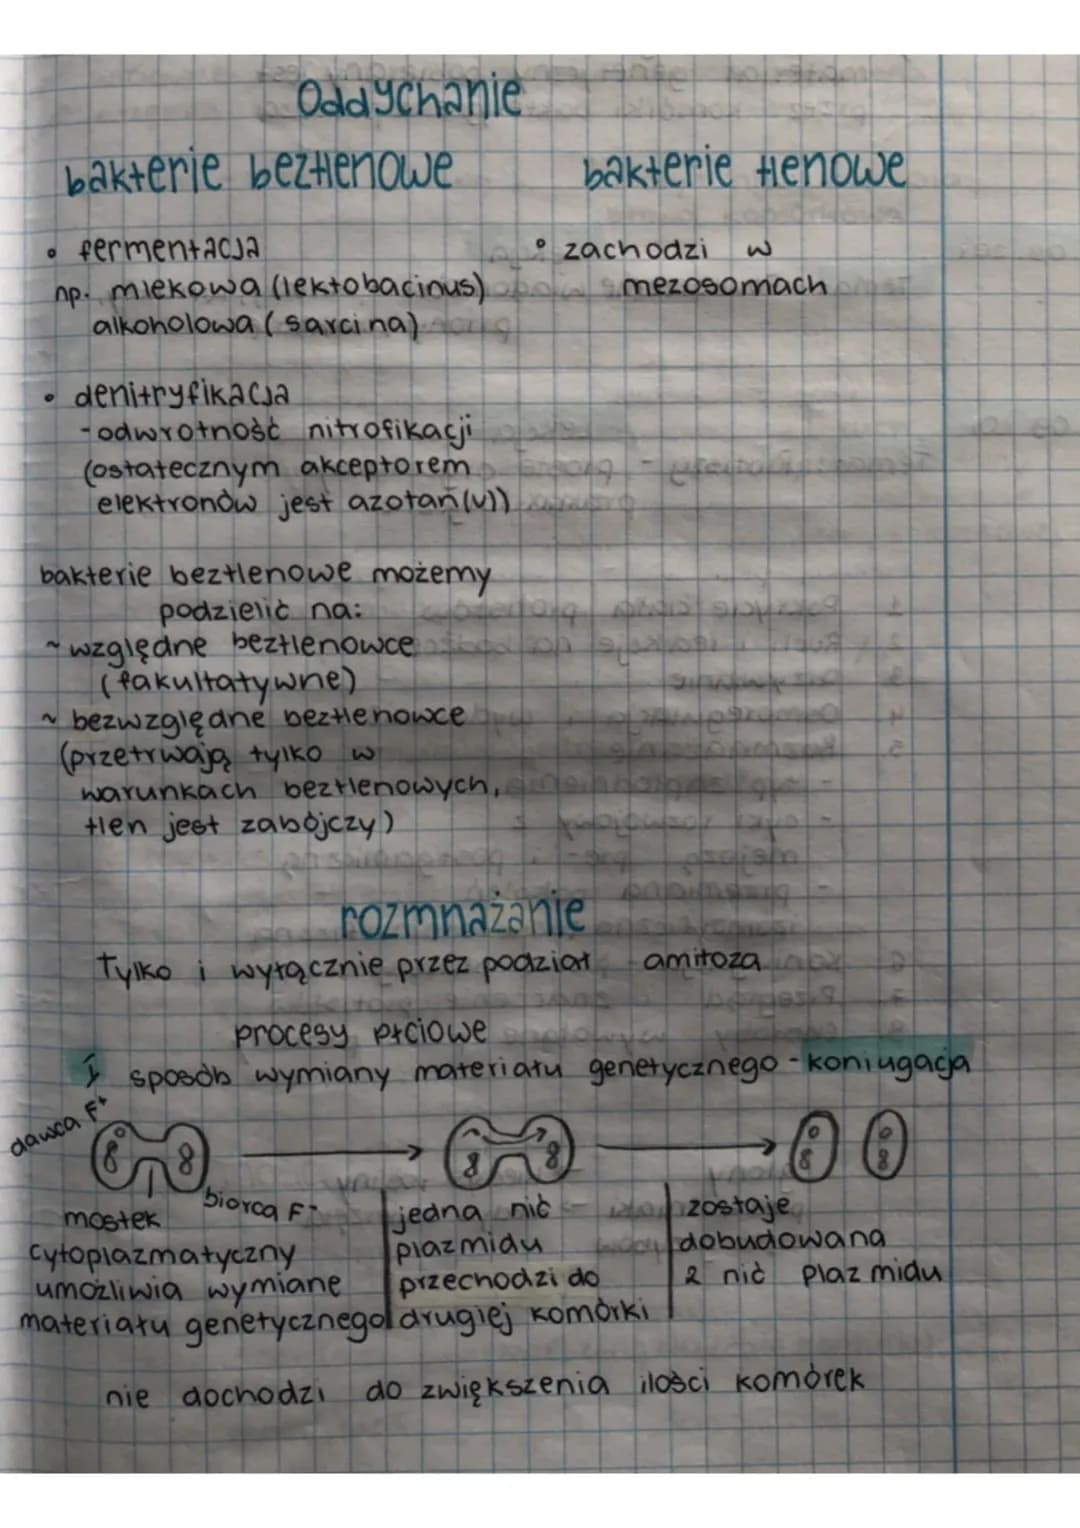 Oddychanie
bakterie beztlenowe
bakterie tlenowe
• fermentacja
np. mlekowa (lektobacinus)
alkoholowa (sarcina)
• zachodzi w
mezosomach
• denitryfikacja
- odwrotność nitrofikacji
(ostatecznym akceptorem
elektronów jest azotan(V))
bakterie beztlenowe możemy
podzielić na:
~ względne beztlenowce
(fakultatywne)
~ bezwzględne beztlenowce
(przetrwają tylko w
warunkach beztlenowych,
tlen jest zabójczy)
rozmnażanie
Tylko i wyłącznie przez podział amitoza
procesy płciowe
sposób wymiany materiału genetycznego - koniugacja
dawca F+
biorca F-
mostek
cytoplazmatyczny
umożliwia wymianę
materiału genetycznego
jedna nić
plazmidu
przechodzi do
drugiej komórki
zostaje
dobudowana
2 nić plazmidu
nie dochodzi do zwiększenia ilości komórek